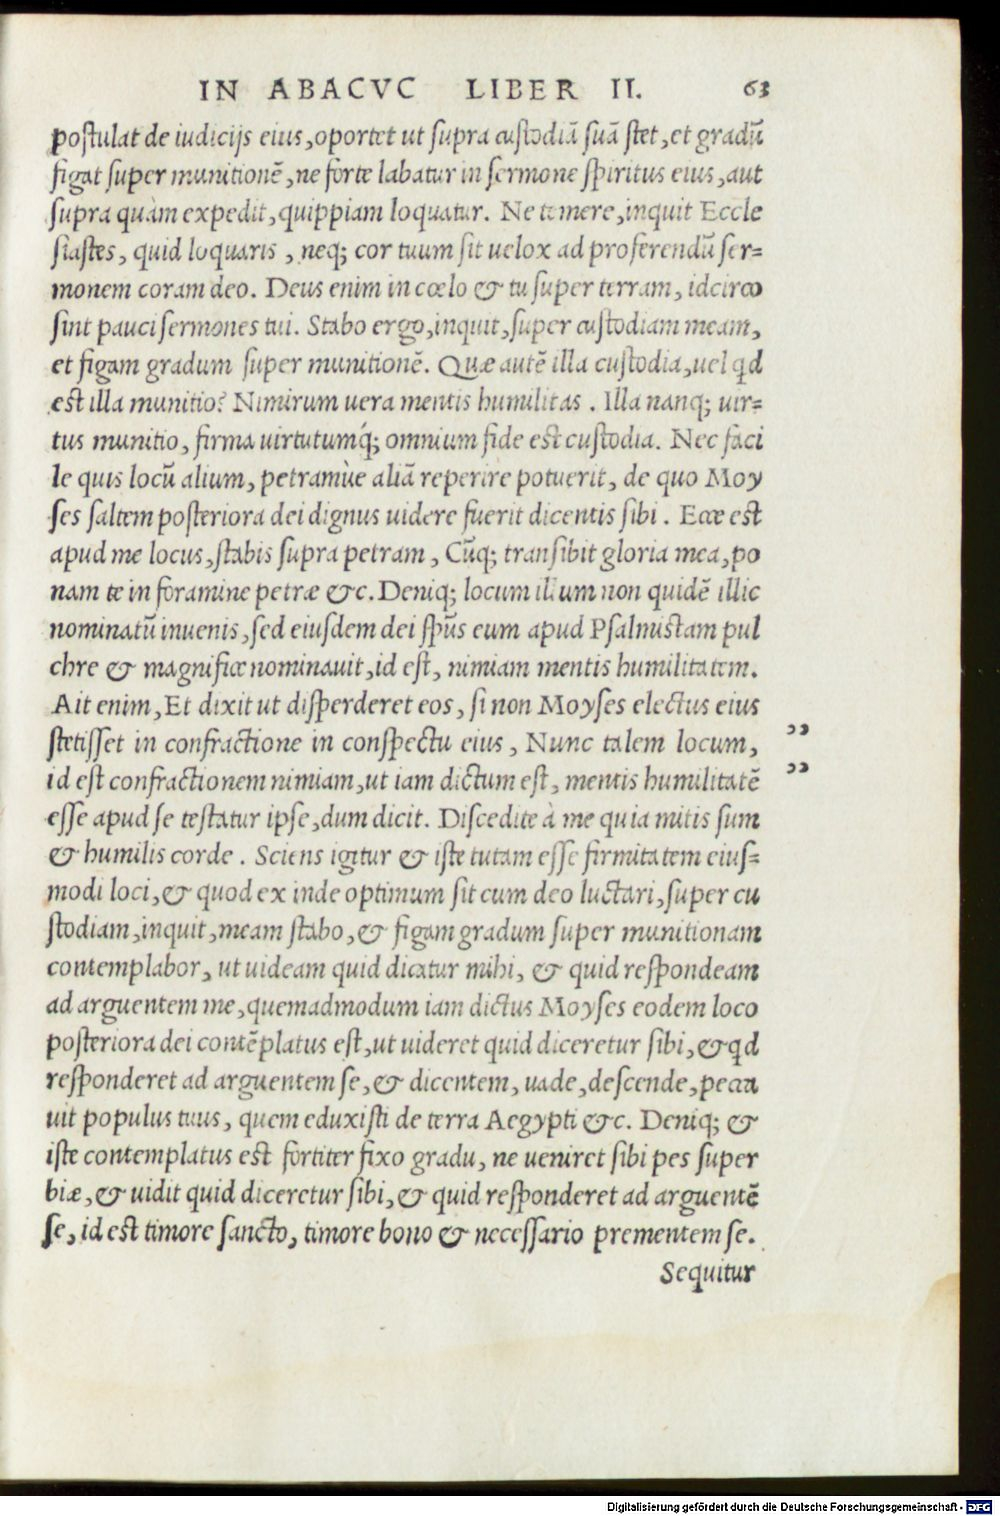 IN ABACVC LIBER II. 63
postulat de iudicijs eius, oportet ut supra custodiā suā stet, et gradū
figat super munitionē, ne forte labatur in sermone spiritus eius, aut
supra quàm expedit, quippiam loquatur. Ne temere, inquit Eccle
siastes, quid loquaris, neq; cor tuum sit uelox ad proferendū ser=
monem coram deo. Deus enim in cœlo & tu super terram, idcirco
sint pauci sermones tui. Stabo ergo, inquit, super custodiam meam,
et figam gradum super munitionē. Quæ autē illa custodia, uel qd
est illa munitio? Nimirum uera mentis humilitas. Illa nanq; uir=
tus munitio, firma uirtutumq́; omnium fide est custodia. Nec faci
le quis locū alium, petramùe aliā reperire potuerit, de quo Moy
ses saltem posteriora dei dignus uidere fuerit dicentis sibi. Ecce est
apud me locus, stabis supra petram, Cūq; transibit gloria mea, po
nam te in foramine petræ &c. Deniq; locum illum non quidē illic
nominatū inuenis, sed eiusdem dei spūs eum apud Psalmistam pul
chre & magnifice nominauit, id est, nimiam mentis humilitatem.
Ait enim, Et dixit ut disperderet eos, si non Moyses electus eius
stetisset in confractione in conspectu eius, Nunc talem locum, ,,
id est confractionem nimiam, ut iam dictum est, mentis humilitatē ,,
esse apud se testatur ipse, dum dicit. Discedite à me quia mitis sum
& humilis corde. Sciens igitur & iste tutam esse firmitatem eius=
modi loci, & quod ex inde optimum sit cum deo luctari, super cu
stodiam, inquit, meam stabo, & figam gradum super munitionam
contemplabor, ut uideam quid dicatur mihi, & quid respondeam
ad arguentem me, quemadmodum iam dictus Moyses eodem loco
posteriora dei contēplatus est, ut uideret quid diceretur sibi, & qd
responderet ad arguentem se, & dicentem, uade, descende, pecca
uit populus tuus, quem eduxisti de terra Aegypti &c. Deniq; &
iste contemplatus est fortiter fixo gradu, ne ueniret sibi pes super
biæ, & uidit quid diceretur sibi, & quid responderet ad arguentē
se, id est timore sancto, timore bono & necessario prementem se.
Sequitur
Digitalisierung gefördert durch die Deutsche Forschungsgemeinschaft - DFG